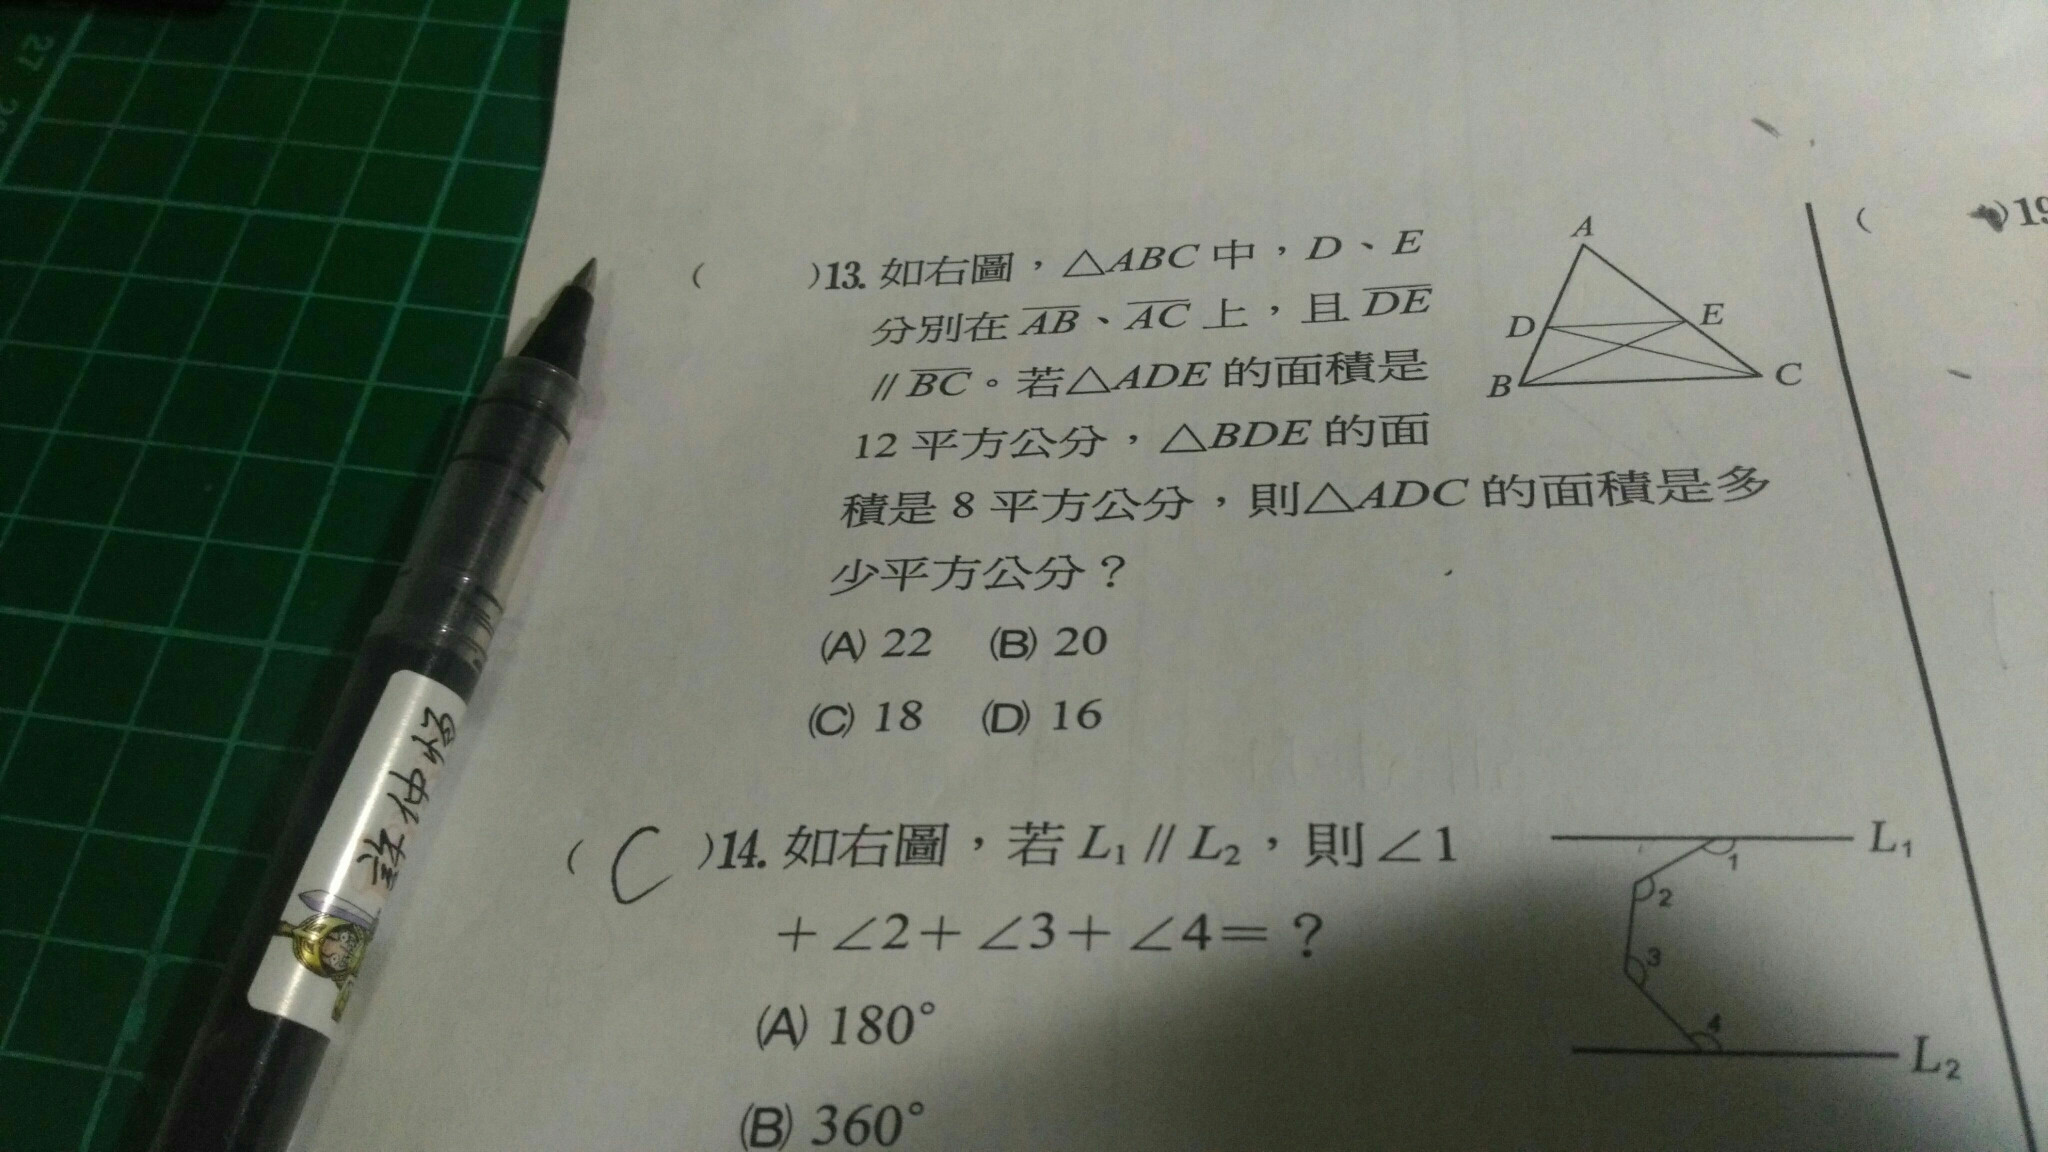 27
( )13. 如右圖，△ABC 中，D、E
分別在 AB、AC 上，且 DE
// BC。若△ADE 的面積是
12 平方公分，△BDE 的面
積是 8 平方公分，則△ADC 的面積是多
少平方公分？
(A) 22 (B) 20
(C) 18 (D) 16
A
D E
B C
( C )14. 如右圖，若 L₁ // L₂，則∠1
+∠2+∠3+∠4=？
(A) 180°
(B) 360°
L₁
1
2
3
4
L₂
( )19
許仲